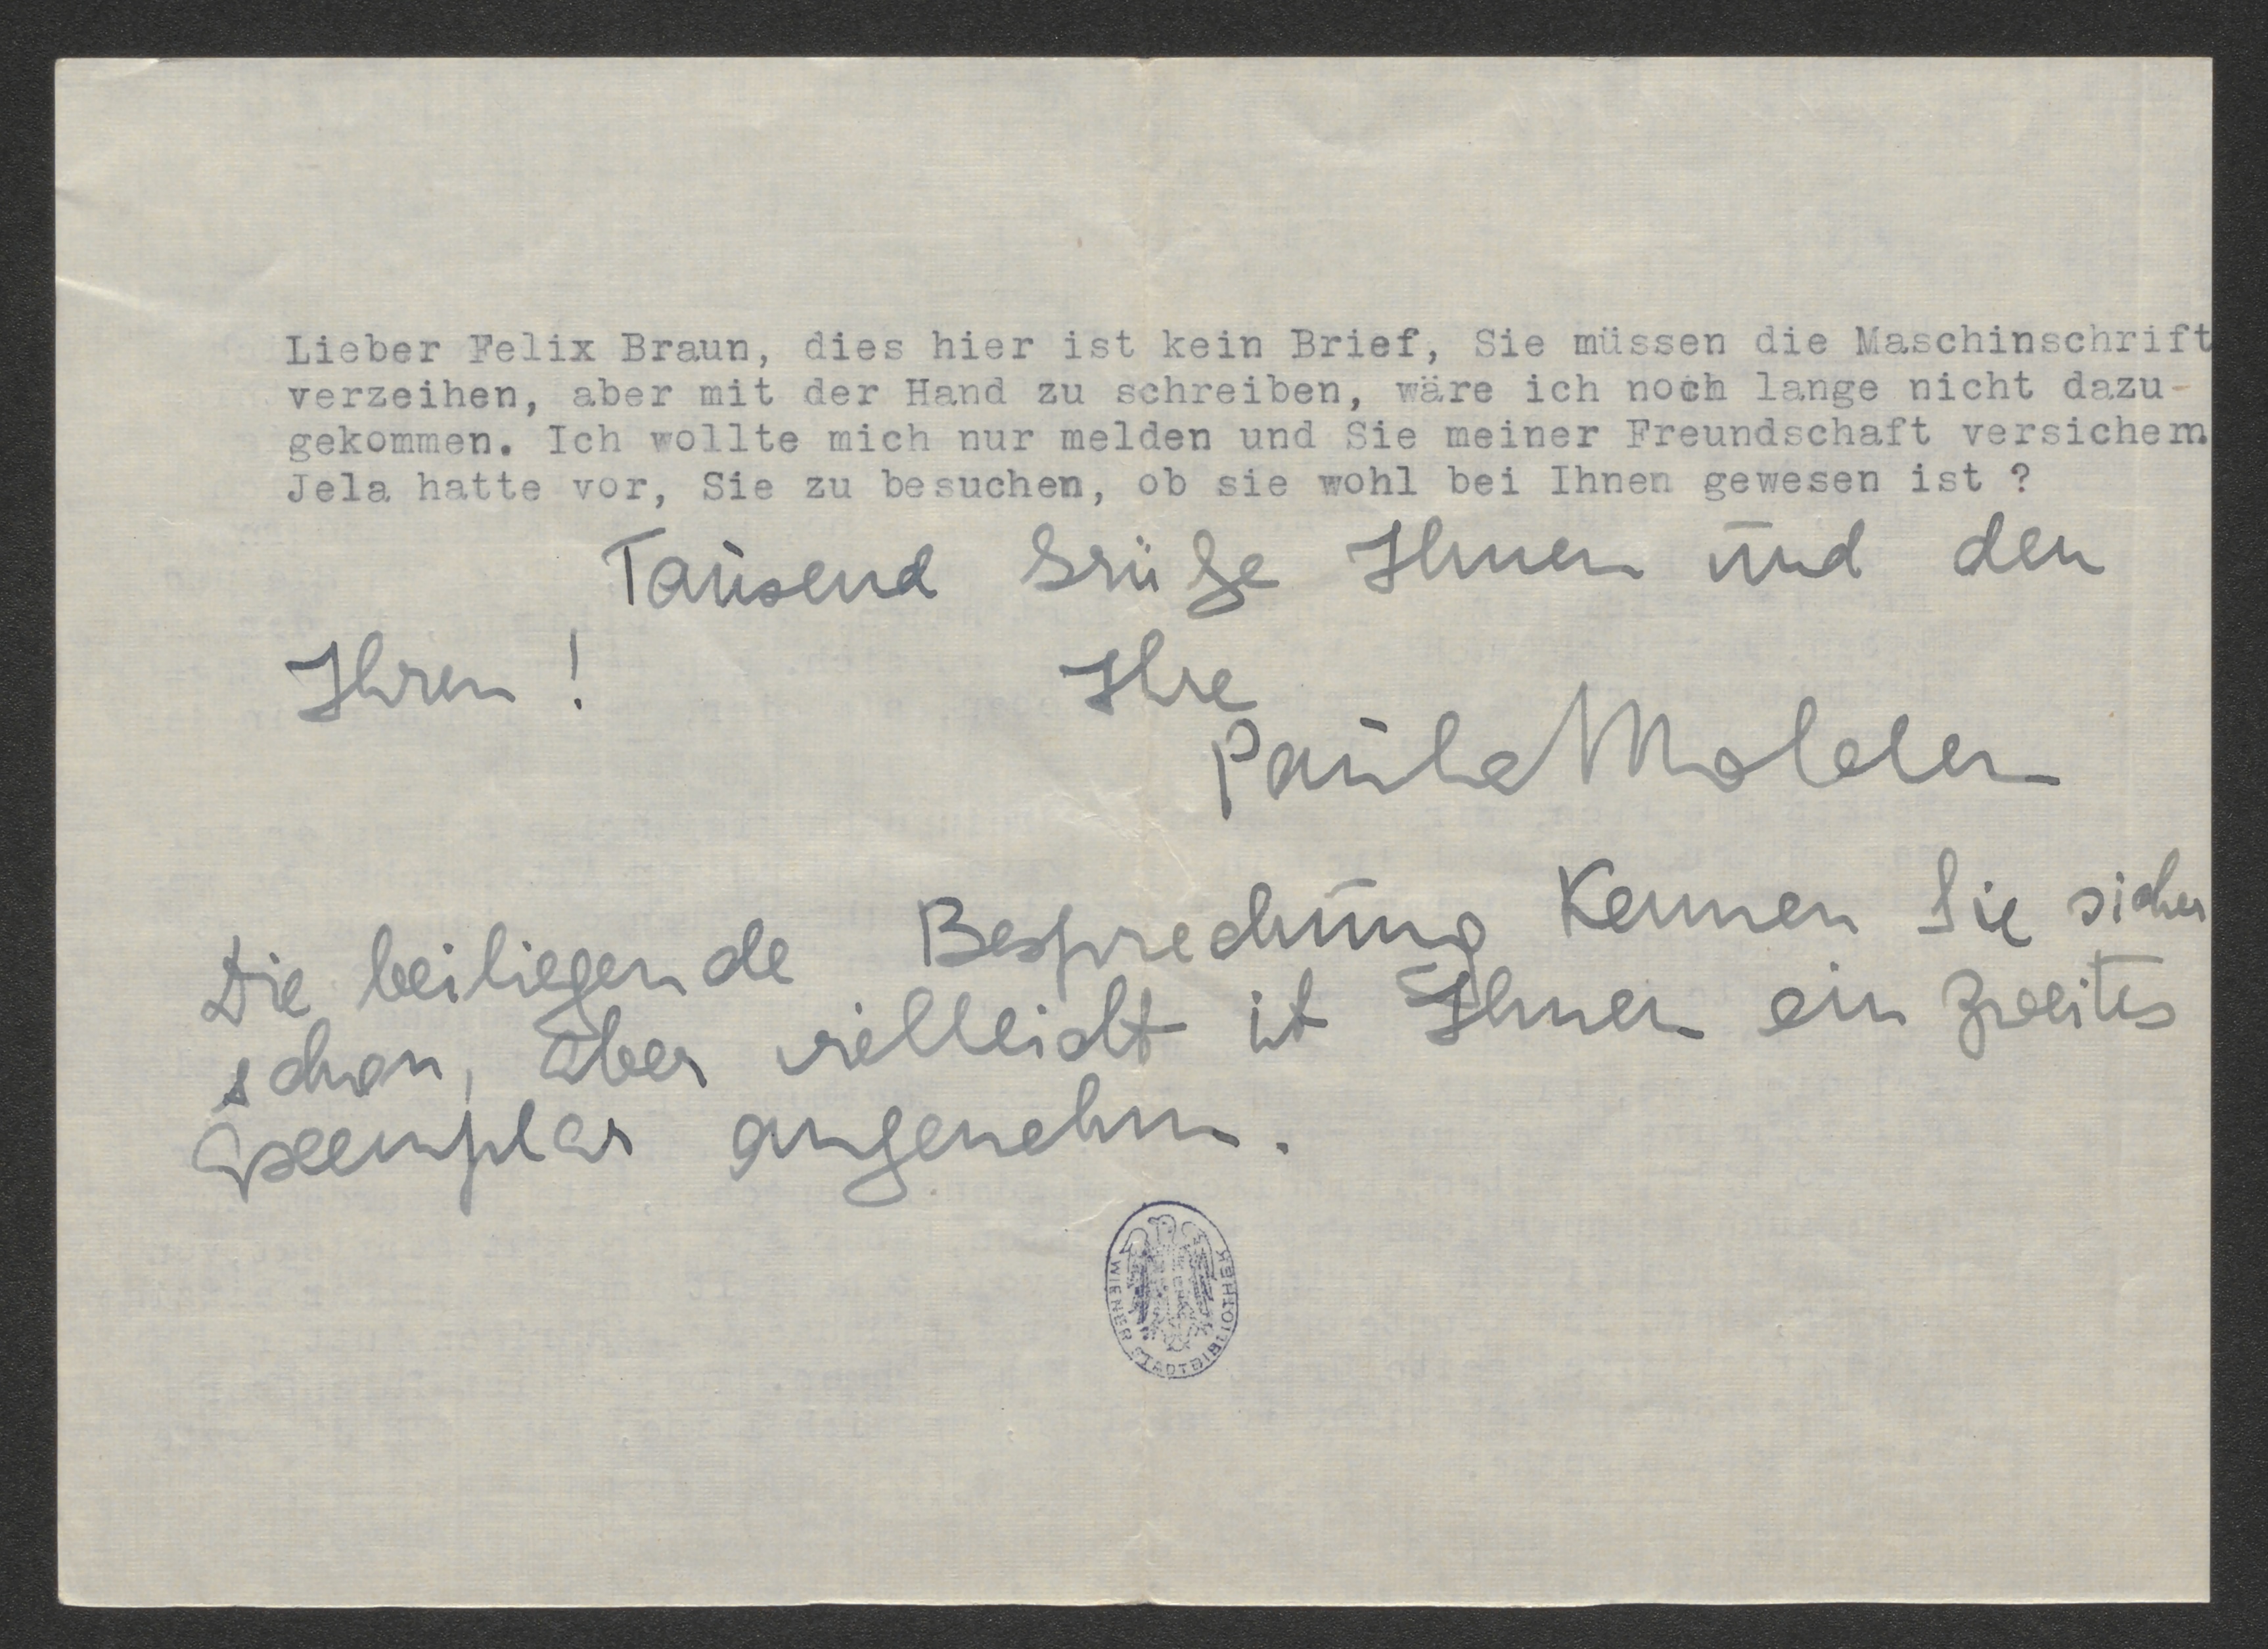 Lieber Felix Braun, dies hier ist kein Brief, Sie müssen die Maschinschrift
verzeihen, aber mit der Hand zu schreiben, wäre ich noch lange nicht dazu-
gekommen. Ich wollte mich nur melden und Sie meiner Freundschaft versichern.
Jela hatte vor, Sie zu besuchen, ob sie wohl bei Ihnen gewesen ist ?
Tausend Grüße Ihnen und den
Ihren !
Ihre
Paula Molden
Die beiliegende Besprechung kennen Sie sicher
schon, aber vielleicht ist Ihnen ein zweites
Exemplar angenehm.
WIENER STADTBIBLIOTHEK